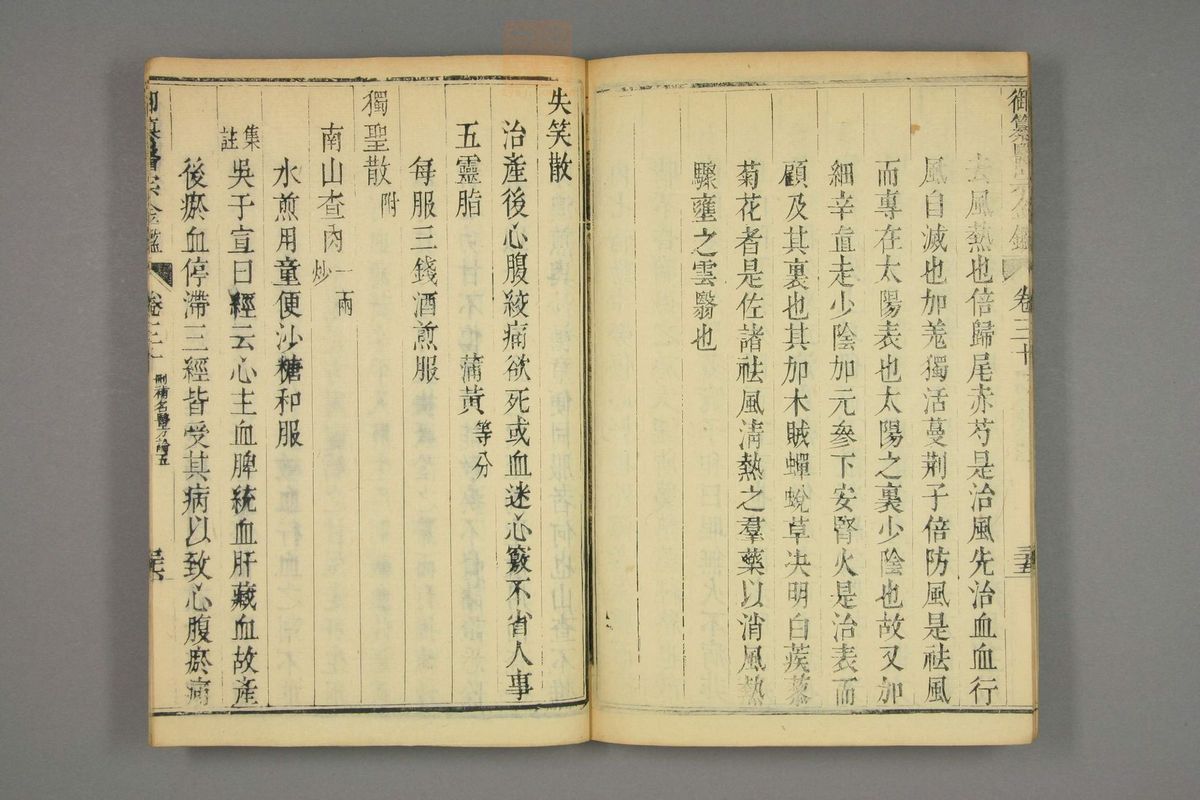 御纂醫宗金鑑 卷三十 三十五
去風熱也倍歸尾赤芍是治風先治血血行
風自滅也加羌獨活蔓荆子倍防風是祛風
而專在太陽表也太陽之裏少陰也故又加
細辛直走少陰加元參下安腎火是治表而
顧及其裏也其加木賊蟬蛻草决明白蒺蔾
菊花者是佐諸祛風清熱之羣藥以消風熱
驟壅之雲翳也
失笑散
治產後心腹絞痛欲死或血迷心竅不省人事
五靈脂 蒲黃等分
每服三錢酒煎服
獨聖散附
南山查肉一兩炒
水煎用童便沙糖和服
集註 吳子宣曰經云心主血脾統血肝藏血故產
後瘀血停滯三經皆受其病以致心腹瘀痛
御纂醫宗金鑑 卷三十 刪補名醫方論五 三十六